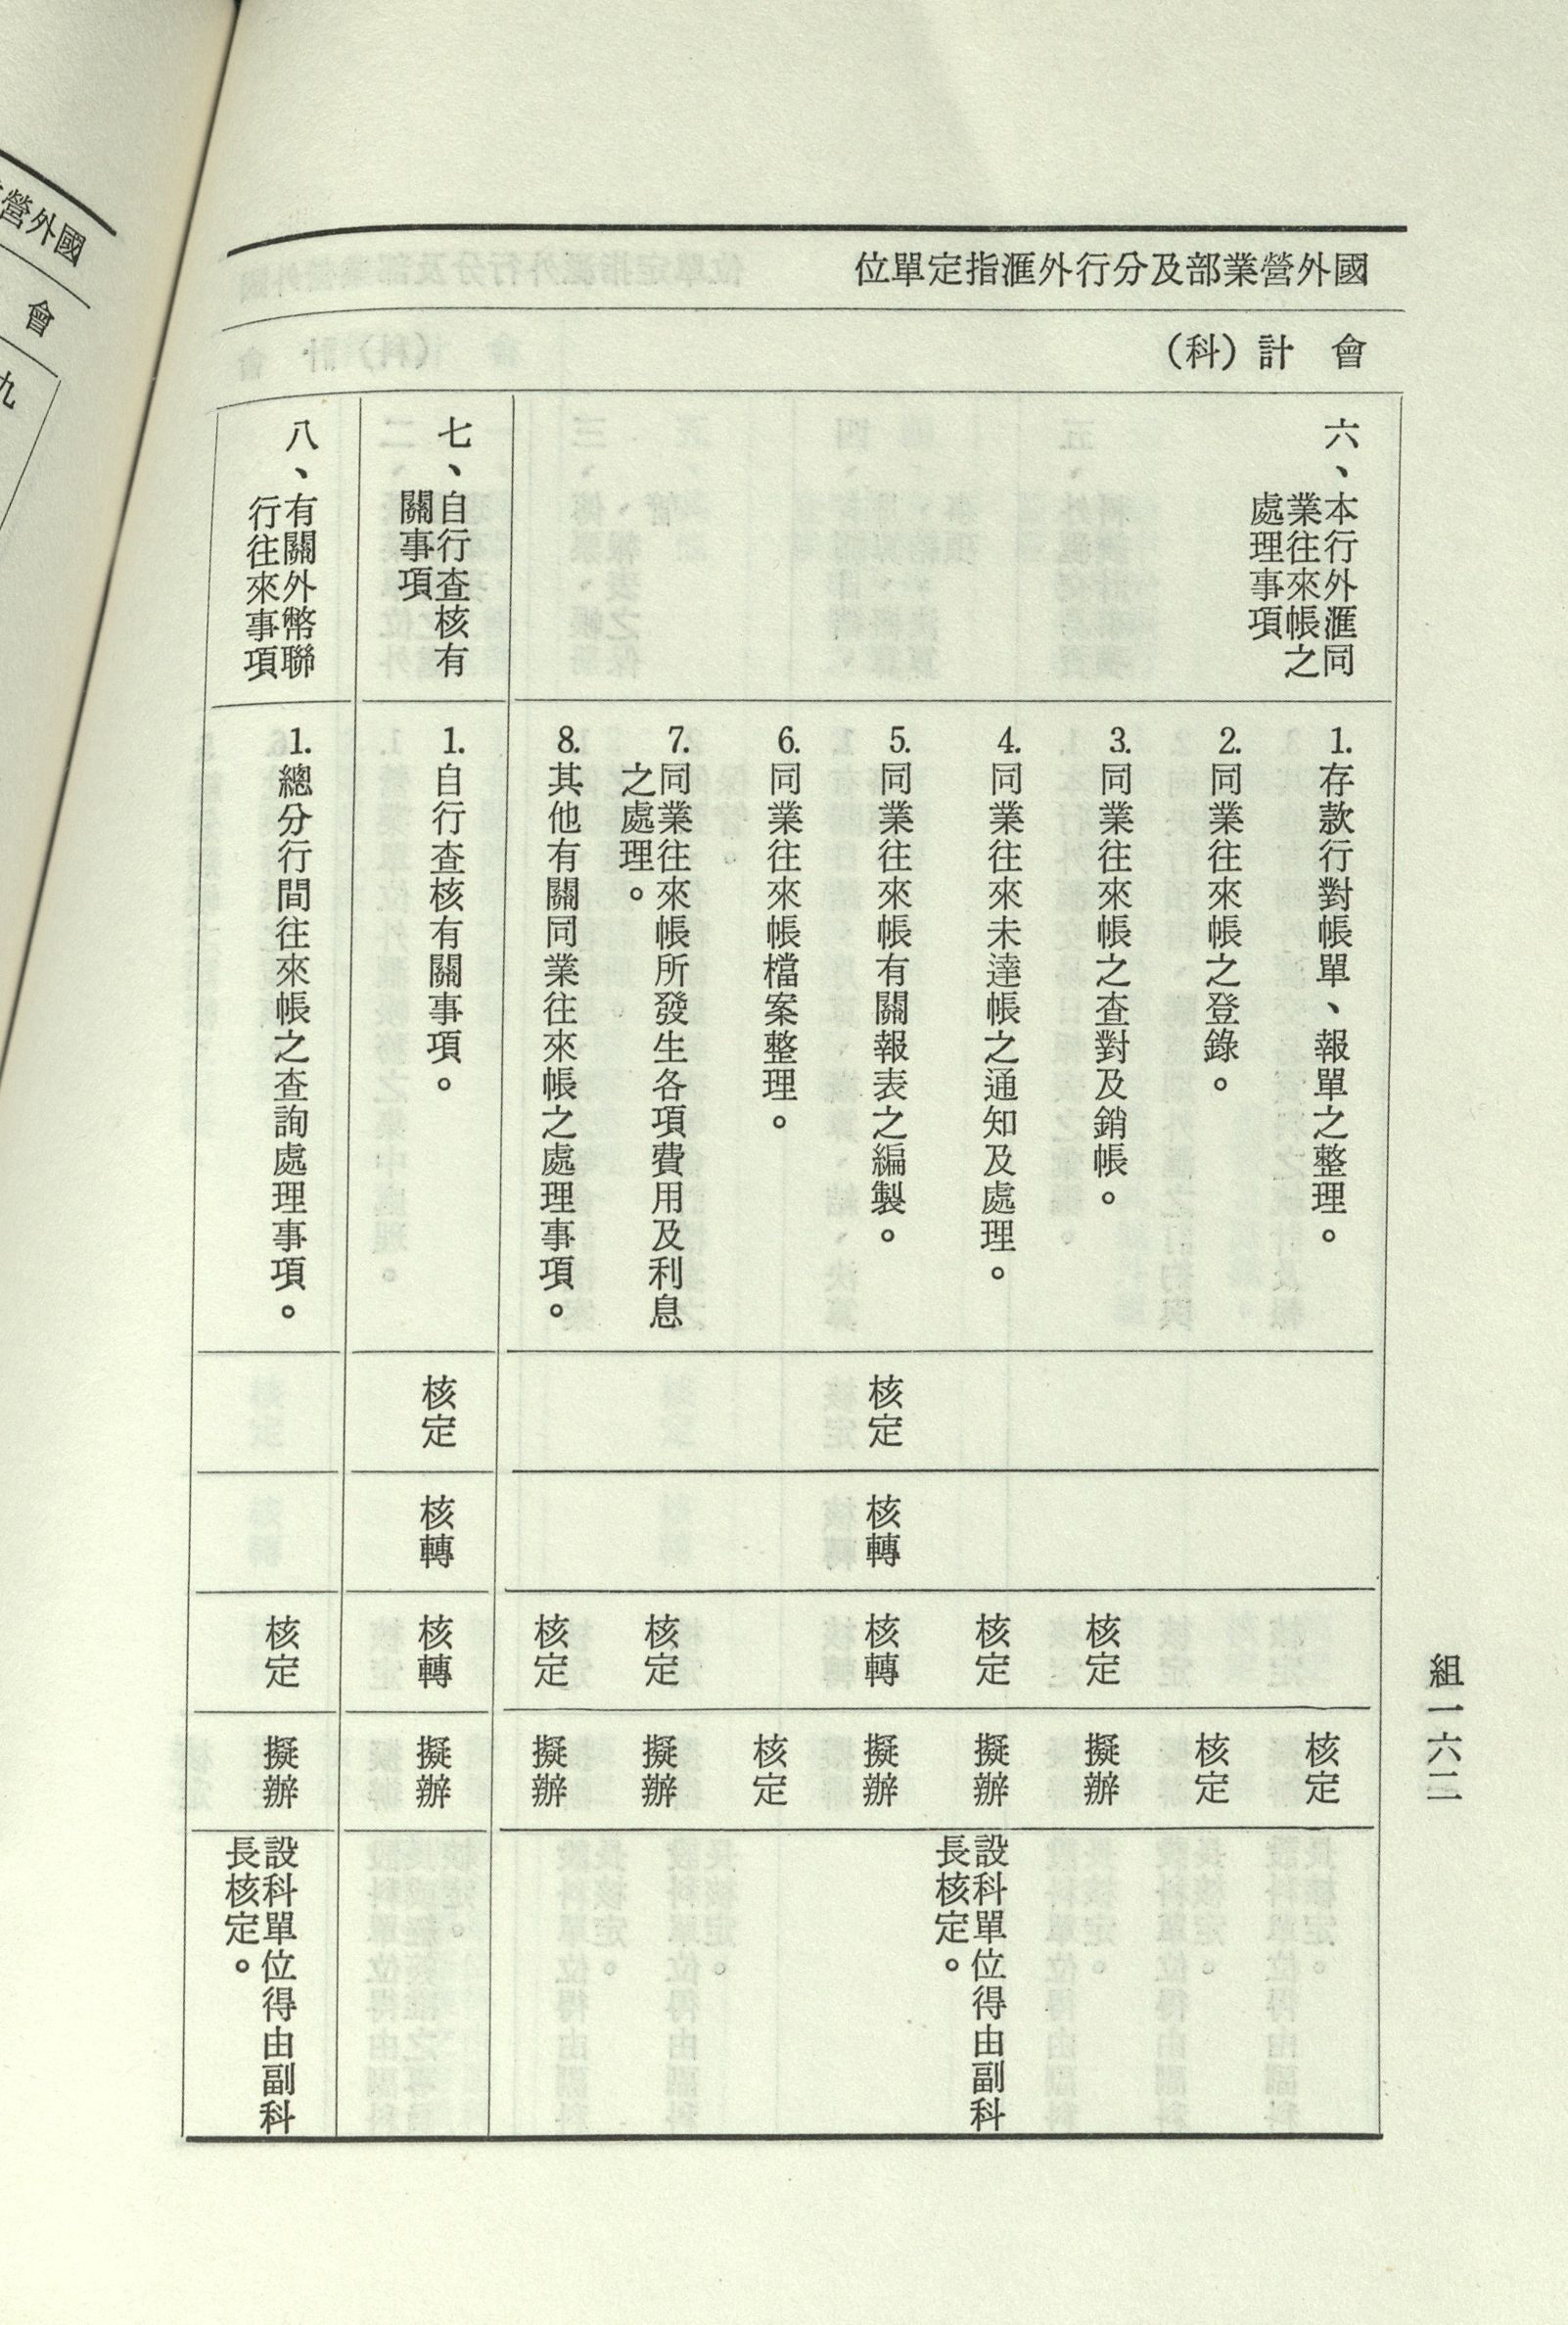 國外營業部及分行外滙指定單位
會計(科)
六、本行外滙同
業往來帳之
處理事項
1.存款行對帳單、報單之整理。
核定
2.同業往來帳之登錄。
核定
3.同業往來帳之查對及銷帳。
核定
擬辦
4.同業往來未達帳之通知及處理。
核定
擬辦
設科單位得由副科
長核定。
5.同業往來帳有關報表之編製。
核定
核轉
核轉
擬辦
6.同業往來帳檔案整理。
核定
7.同業往來帳所發生各項費用及利息
之處理。
核定
擬辦
8.其他有關同業往來帳之處理事項。
核定
擬辦
七、自行查核有
關事項
1.自行查核有關事項。
核定
核轉
核轉
擬辦
八、有關外幣聯
行往來事項
1.總分行間往來帳之查詢處理事項。
核定
擬辦
設科單位得由副科
長核定。
組一六二
國外營
會
九